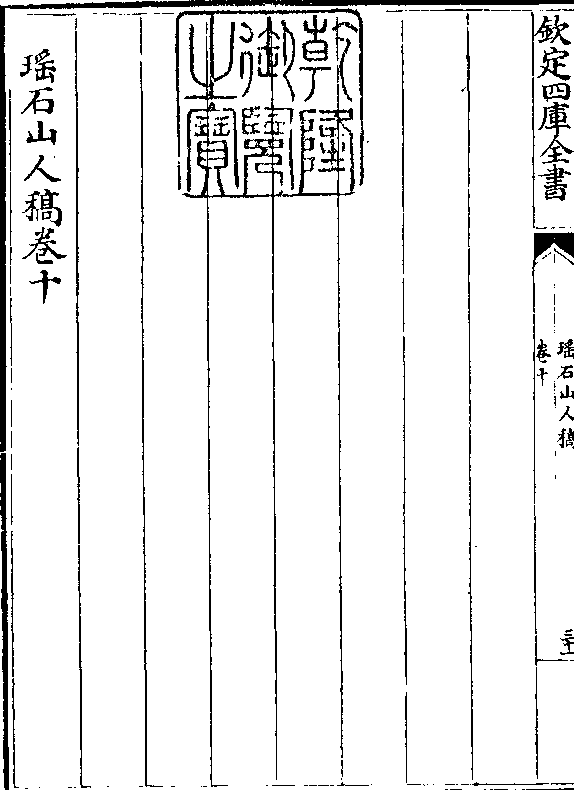 欽定四庫全書
瑶石山人稿
卷十
乾隆
御覽
之寶
瑶石山人稿卷十